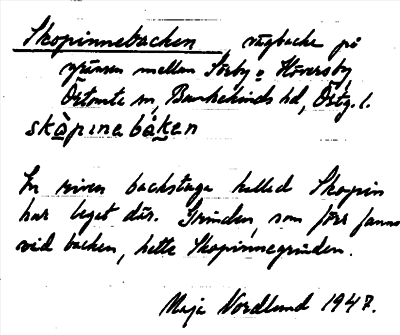 Skopinnebacken, vägbacke på
gränsen mellan Sörby o Häversby,
Örtomta sn, Bankekinds hd, Östg. l.
skɷ̀pınebákən
En riven backstuga kallad Skopin
har legat där. Grinden, som förr fanns
vid backen, hette Skopinnegrinden.
Maja Nordlund 1947.